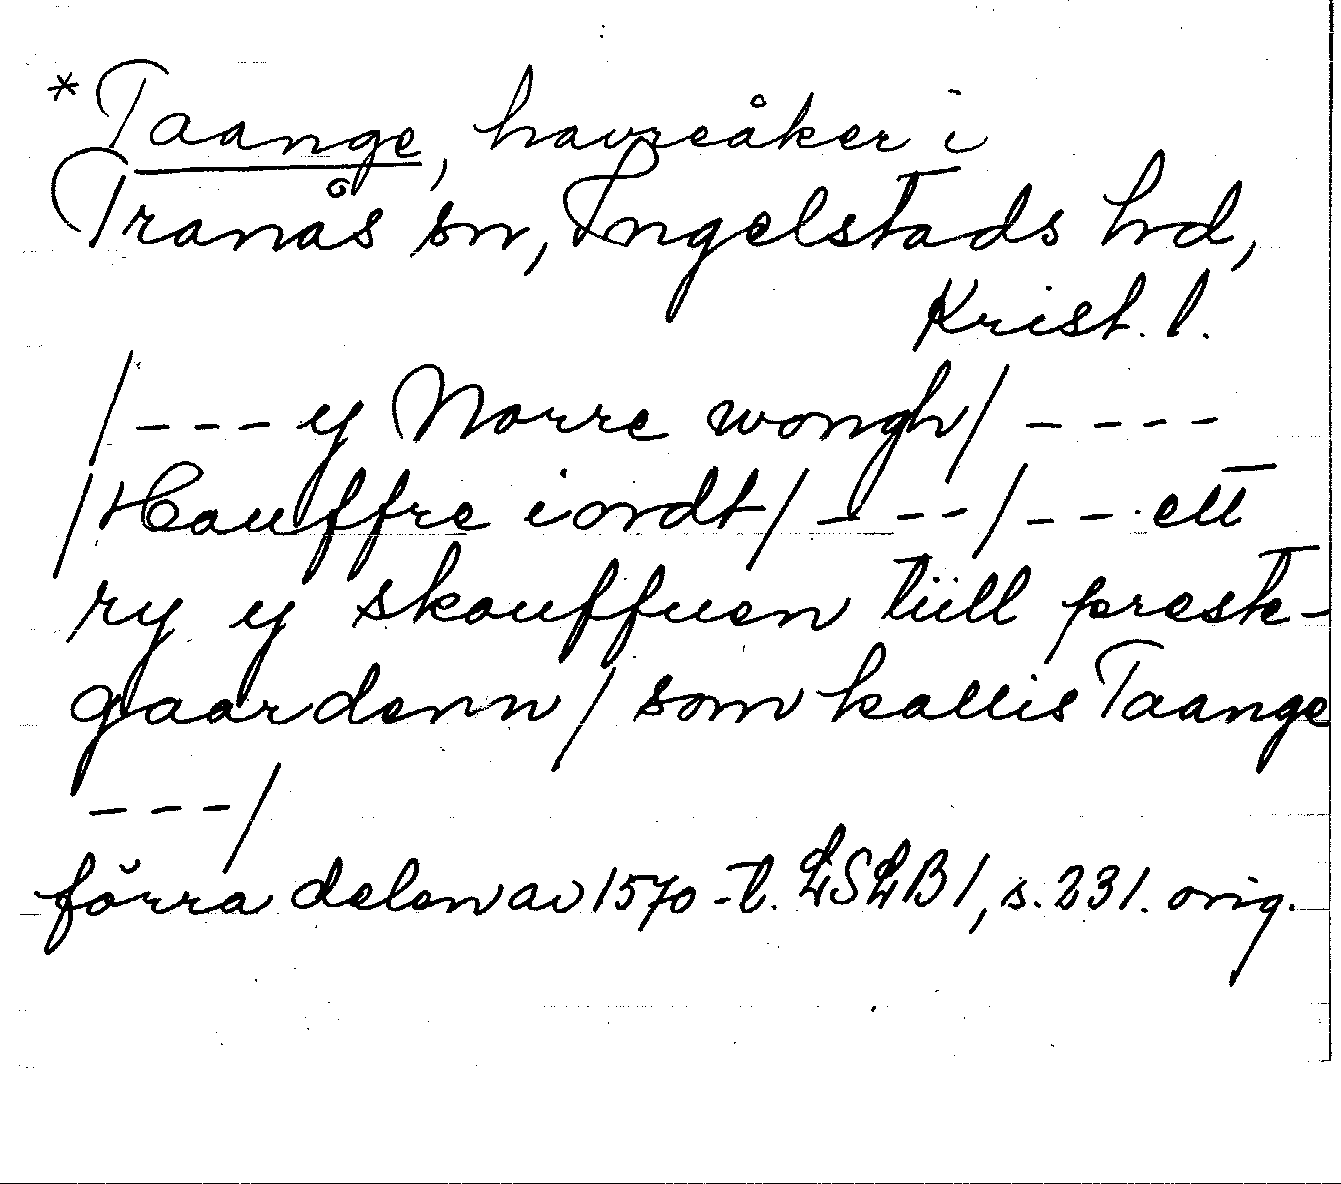 *Taange, havreåker i
Tranås sn, Ingelstads hd,
Krist. l.
/--- y Norre wongh/ ----
/Hauffre iordt/ ---/ -- ett
ry y skouffuen tiill prest-
gaardenn/ som kallis Taange
---/
förra delen av 1570-t. LSLB 1, s. 231. orig.